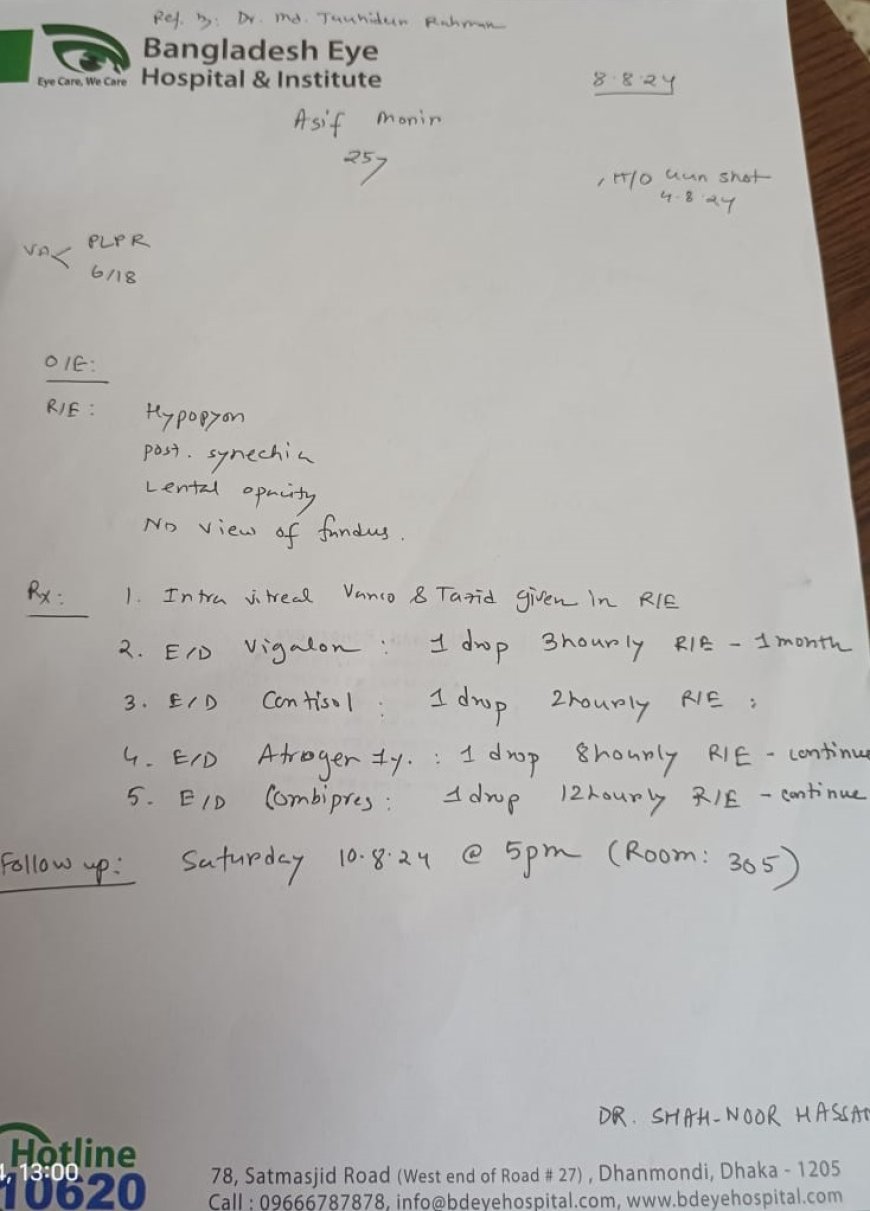 Ref. by: Dr. Md. Tauhidur Rahman
Bangladesh Eye
Hospital & Institute
Eye Care, We Care
8.8.24
Asif Monir
25y
H/O Gun shot
4.8.24
VA< PLPR
6/18
O/E:
R/E: Hypopyon
post. synechia
Lental opacity
No view of fundus.
Rx: 1. Intra vitreal Vanco & Tazid given in R/E
2. E/D Vigalon : 1 drop 3 hourly R/E - 1 month
3. E/D Contisol : 1 drop 2 hourly R/E :
4. E/D Atroger 1%. : 1 drop 8 hourly R/E - continue
5. E/D Combipres : 1 drop 12 hourly R/E - continue
Follow up: Saturday 10.8.24 @ 5pm (Room: 305)
DR. SHAH-NOOR HASSAN
Hotline
10620
, 13:00
78, Satmasjid Road (West end of Road # 27) , Dhanmondi, Dhaka - 1205
Call : 09666787878, info@bdeyehospital.com, www.bdeyehospital.com